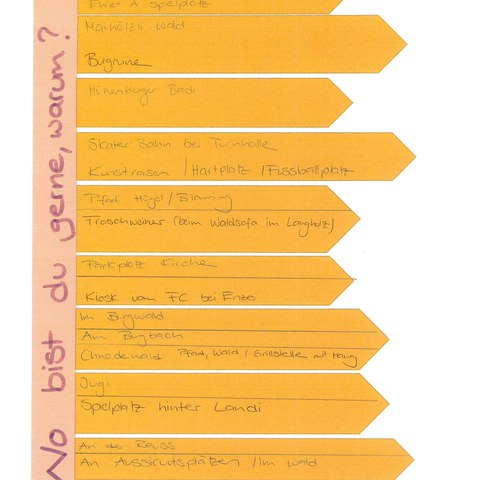 Wo bist du gerne, warum?
Spielplatz
Wald
Burgruine
Hünenberger Badi
Skater Bahn bei Turnhalle
Kunstrasen / Hartplatz / Fussballplatz
Pfadi Hügel /
Froschweiher (beim Waldsofa im Langholz)
Parkplatz Kirche
Kiosk vom FC bei Enzo
Im Burgwald
Am Burgbach
Pfadi, Wald / Grillstelle mit
Jugi
Spielplatz hinter Landi
An der Reuss
An Aussichtsplätzen / im Wald